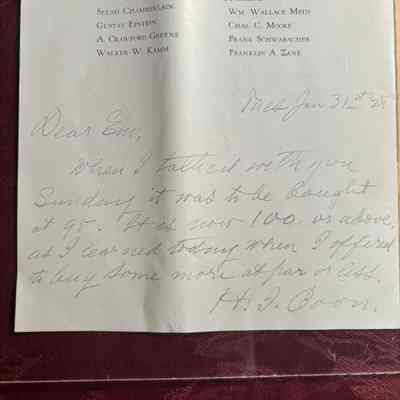 Selah Chamberlain
Gustav Epstein
A. Crawford Greene
Walker W. Kamm
Wm. Wallace Mein
Chas. C. Moore
Frank Schwabacher
Franklin A. Zane
Tues Jan 31st 28
Dear Em,
When I talked with you
Sunday it was to be bought
at 95. It is now 100 or above,
as I learned today when I offered
to buy some more at par or less.
H. F. Boon.